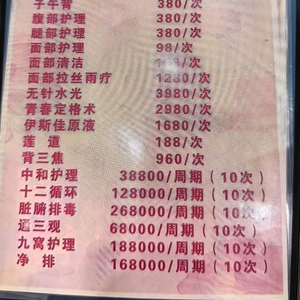 子午背 380/次
腹部护理 380/次
腿部护理 380/次
面部护理 98/次
面部清洁 168/次
面部拉丝雨疗 1280/次
无针水光 3980/次
青春定格术 2980/次
伊斯佳原液 1680/次
莲道 188/次
背三焦 960/次
中和护理 38800/周期（10次）
十二循环 128000/周期（10次）
脏腑排毒 268000/周期（10次）
通三观 68000/周期（10次）
九窝护理 188000/周期（10次）
净排 168000/周期（10次）